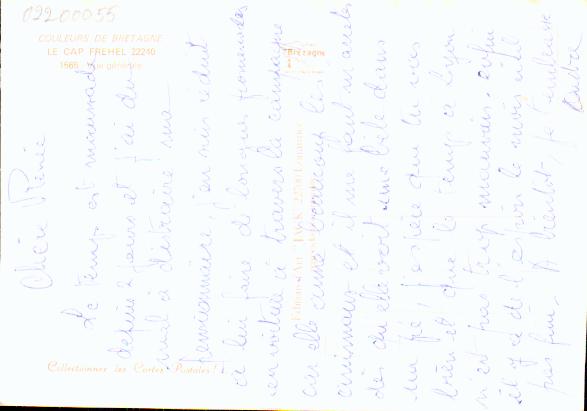 02200055
COULEURS DE BRETAGNE
LE CAP FREHEL 22240
1565 - Vue générale
Bretagne
Editions d'Art "JACK" 22500 Louannec
Collectionnez les Cartes Postales !
Chère Renée
Le temps est maussade
depuis 2 jours et j'ai du
mal à distraire ma
pensionnaire, j'en suis réduit
à lui faire de longues promenades
en voiture à travers la campagne
car elle aime beaucoup les
animaux et il me faut m'arrêter
dès qu'elle voit une bête dans
un pré, j'espère que tu vas
bien et que le temps à Lyon
n'est pas trop mauvais. enfin
il y a de l'espoir le mois d'
pas fini. A bientôt, je t'embrasse